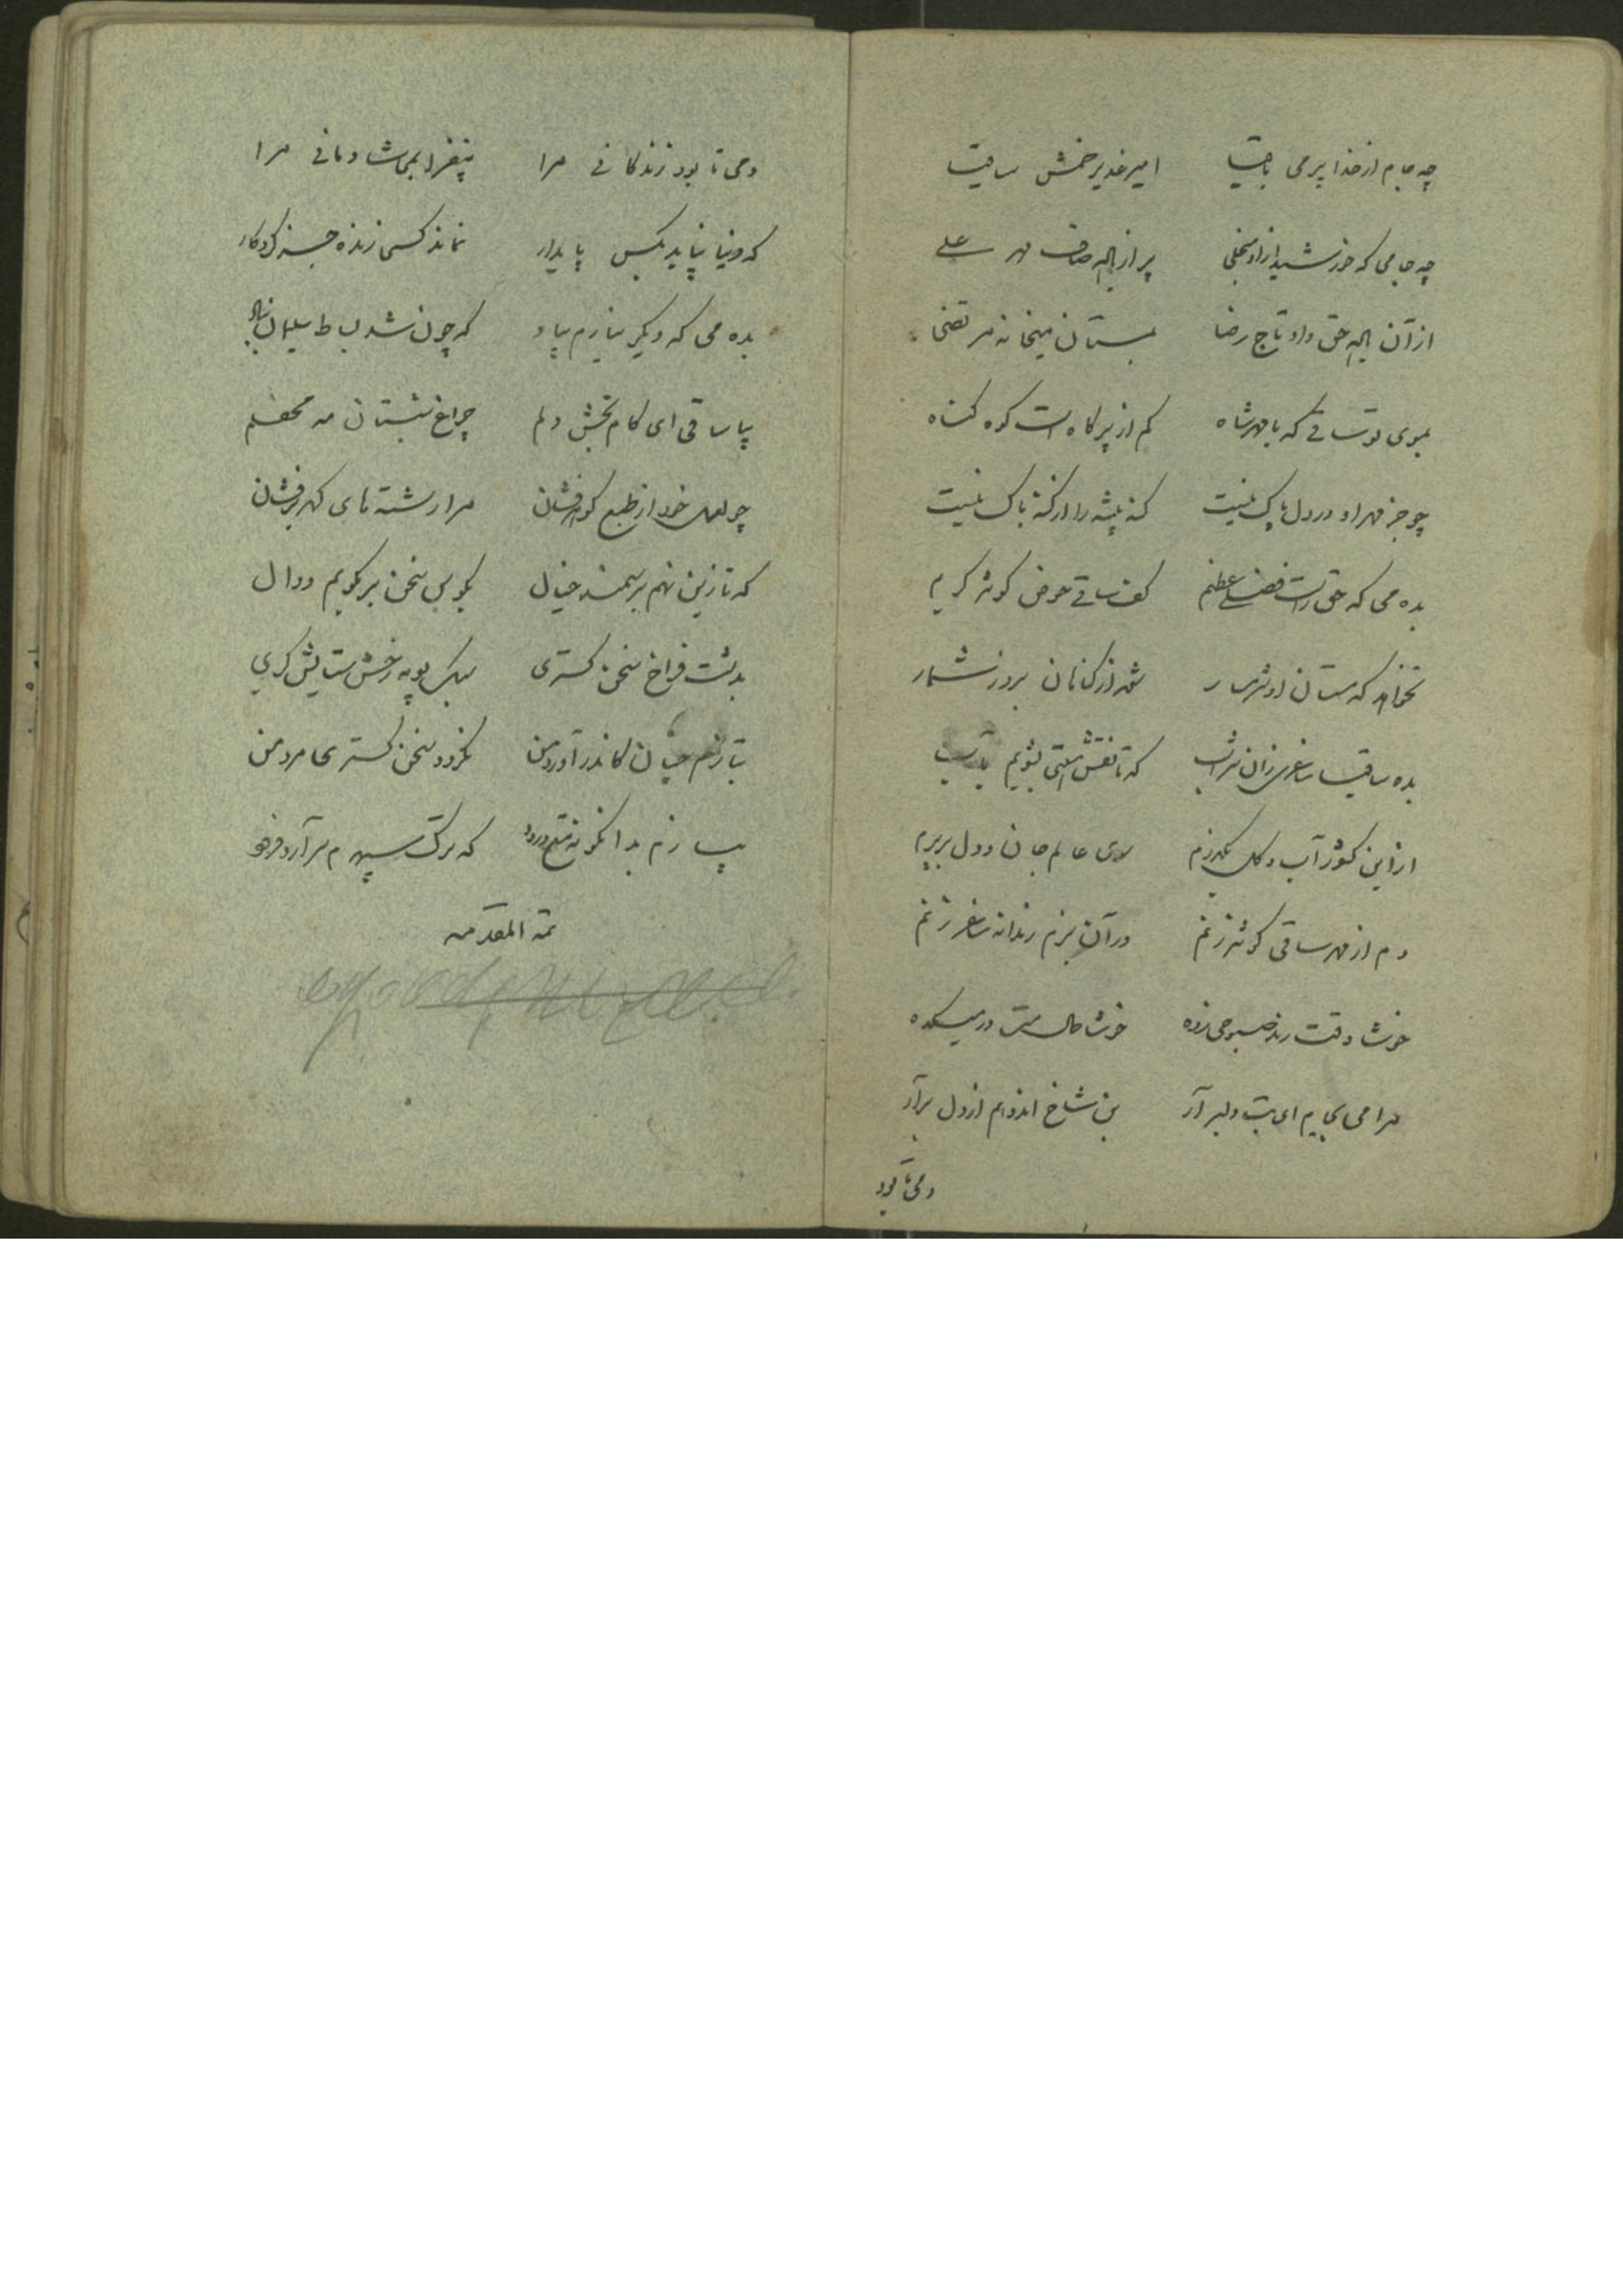 چه جام از خدا پر می باقیا امیر غدیر خمش ساقیا
چه جامی که خورشید از او منجلی پر از باده صاف مهر علی
از آن باده حق داد تاج رضا بمستان میخانه مرتضی
بموی تو ساقی که با مهر شاه کم از پر کاه است کوه گناه
چو جز مهر او در دل پاک نیست گنه پیشه را از گنه باک نیست
بده می که حق راست فضل عظیم کف ساقی حوض کوثر کریم
نخواهد که مستان او شرمسار شوند از گناهان بروز شمار
بده ساقیا ساغری زان شراب که تا نقش هستی بشویم بآب
از این کشور آب و گل بگذرم سوی عالم جان و دل بپرم
دم از مهر ساقی کوثر زنم در آن بزم رندانه ساغر زنم
خوشا وقت رند صبوحی زده خوشا حال مست در میکده
مرا می بجام ای بت دلبر آر بن شاخ اندوهم از دل برآر
دمی تا بود
دمی تا بود زندگانی مرا بیفزا بمی شادمانی مرا
که دنیا نپاید بکس پایدار نماند کسی زنده جز کردگار
بده می که دیگر نیارم بیاد که چون شد بساط سلیمان بباد
بیا ساقی ای کام بخش دلم چراغ شبستان مه محفلم
چو لعل خود از طبع گوهرفشان مرا رشته های گهر برفشان
که تا زین نهم بر سمند خیال بکوس سخن بر بکوبم دوال
بدشت فراخ سخن گستری سبک پویه رخش ستایش گری
بتازم چنان کاندر آورد من نگردد سخن گستری هامرد من
بسازم بدانگونه نغم درود که ترک سپهرم سر آرد فرود
تمة المقدمه